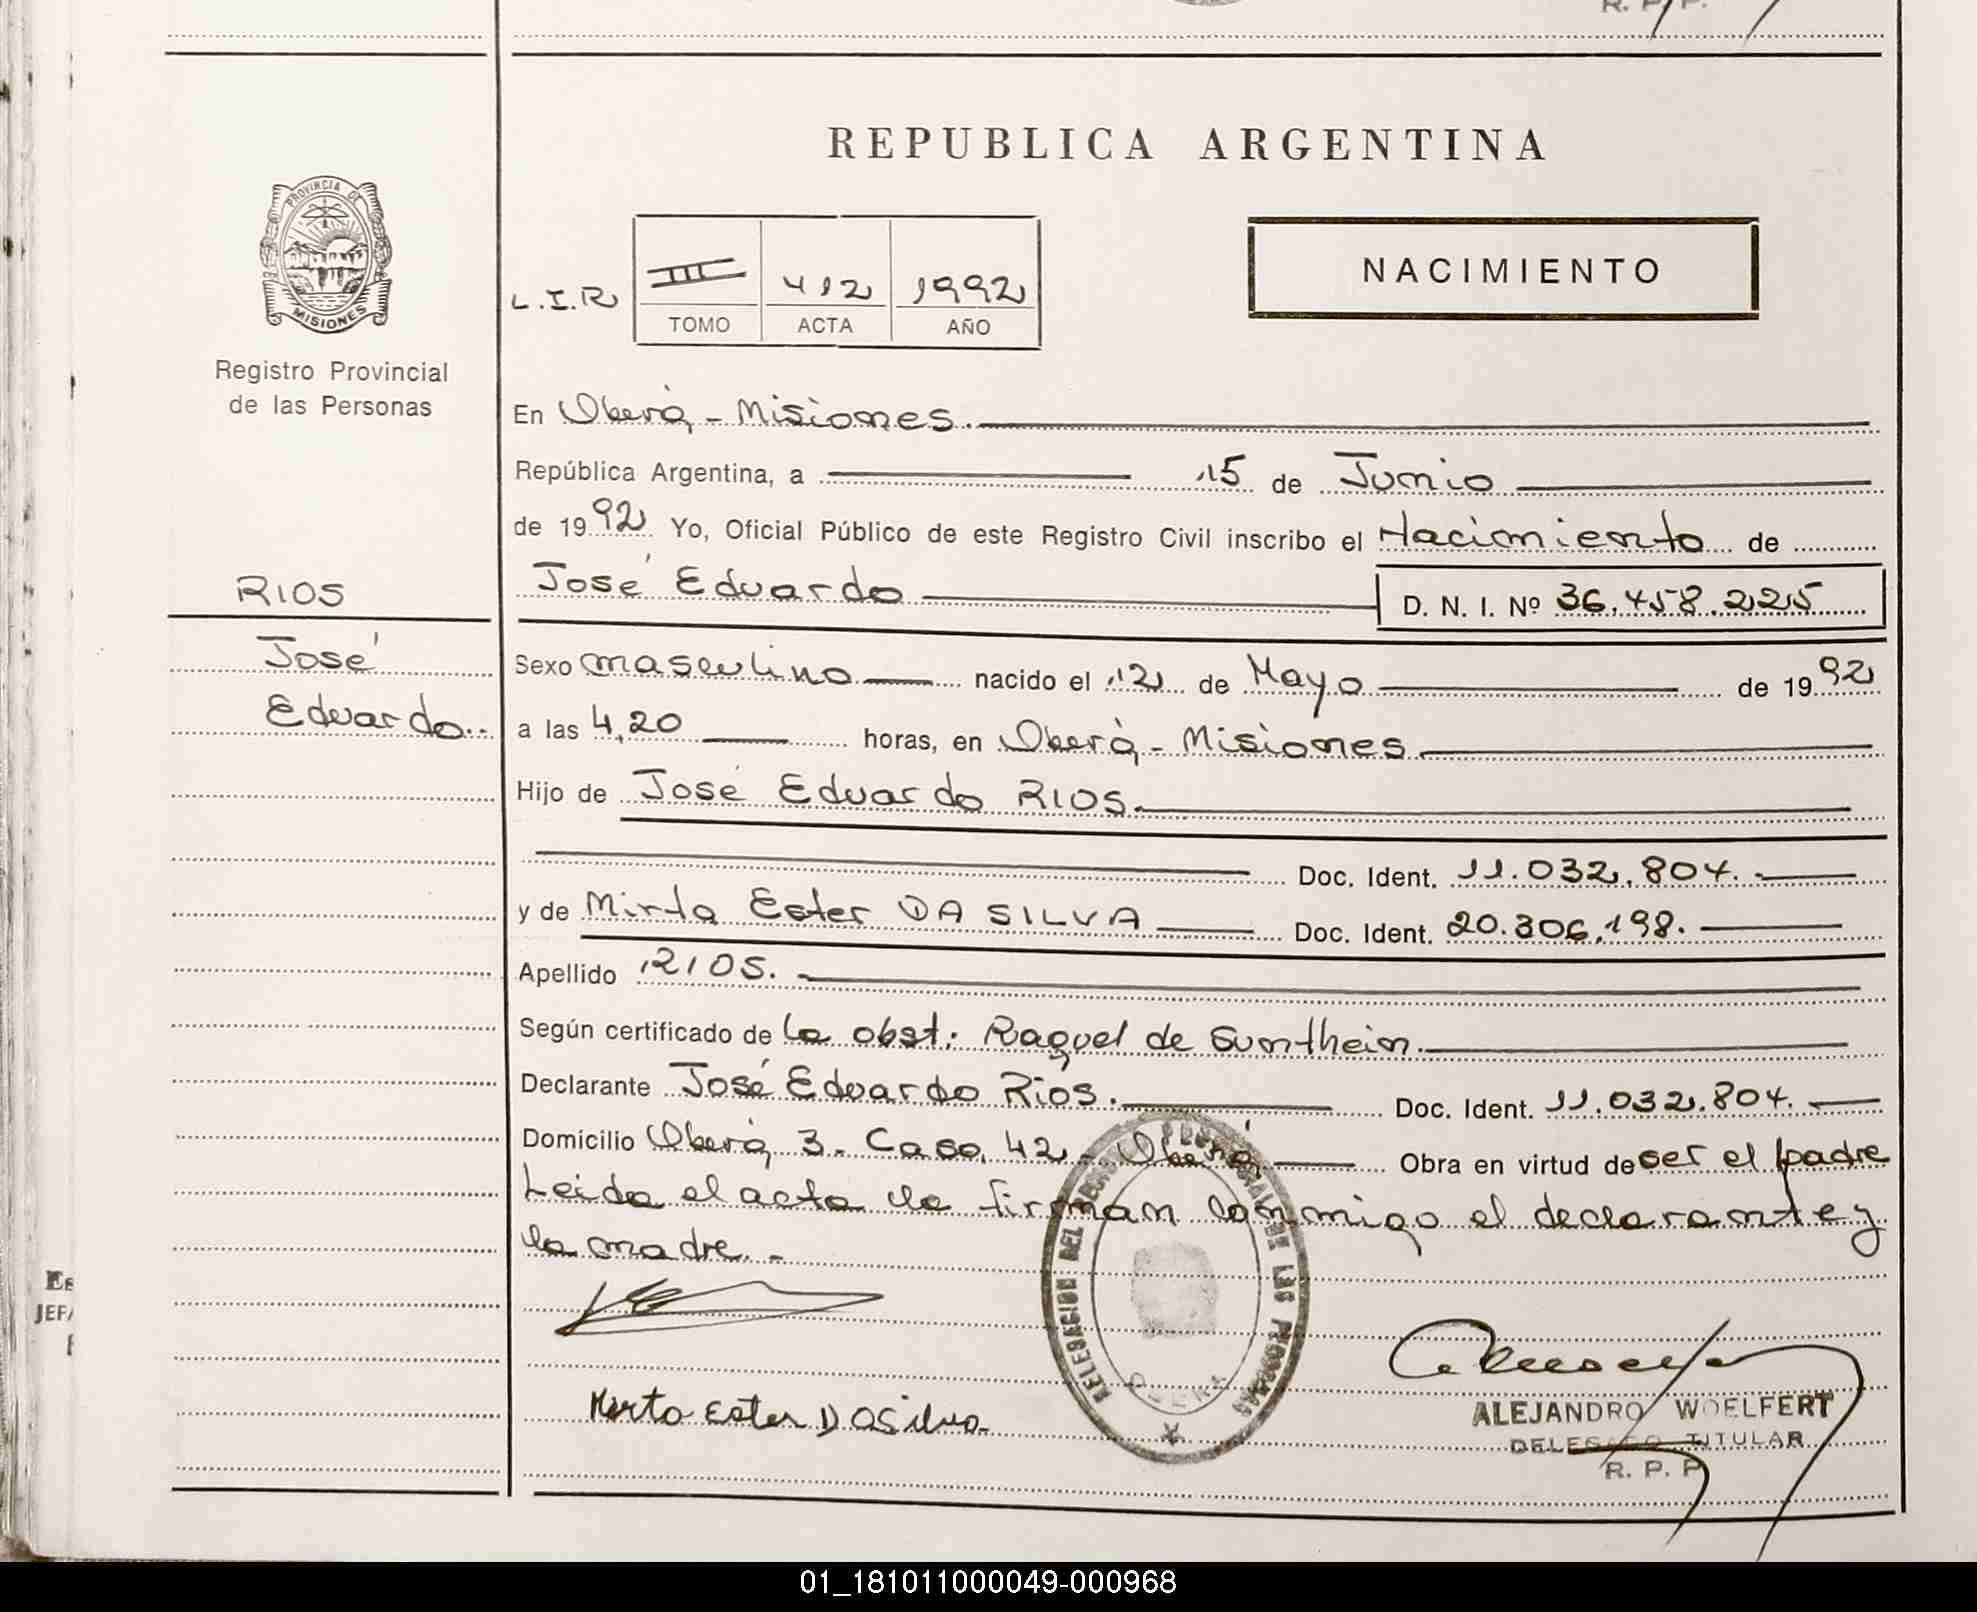 R. P. P.
REPUBLICA ARGENTINA
PROVINCIA DE
MISIONES
Registro Provincial
de las Personas
L.I.R
III 412 1992
TOMO ACTA AÑO
NACIMIENTO
En Oberá - Misiones.
República Argentina, a 15 de Junio
de 1992 Yo, Oficial Público de este Registro Civil inscribo el Nacimiento de
RIOS
José Eduardo D. N. I. Nº 36.458.225
José
Eduardo..
Sexo masculino nacido el 12 de Mayo de 1992
a las 4,20 horas, en Oberá - Misiones
Hijo de José Eduardo RIOS.
Doc. Ident. 11.032.804.
y de Mirta Ester DA SILVA Doc. Ident. 20.306.198.
Apellido RIOS.
Según certificado de la obst: Raquel de Suntheim.
Declarante José Eduardo Rios. Doc. Ident. 11.032.804.
Domicilio Oberá 3. Casa 42 - Oberá Obra en virtud de ser el padre
Leida el acta la firman conmigo el declarante y
la madre. -
DELEGACION DEL REGISTRO PROVINCIAL DE LAS PERSONAS
OBERA
Mirta Ester DaSilva
ALEJANDRO WOELFERT
DELEGADO TITULAR
R. P. P.
JEFA
01_181011000049-000968